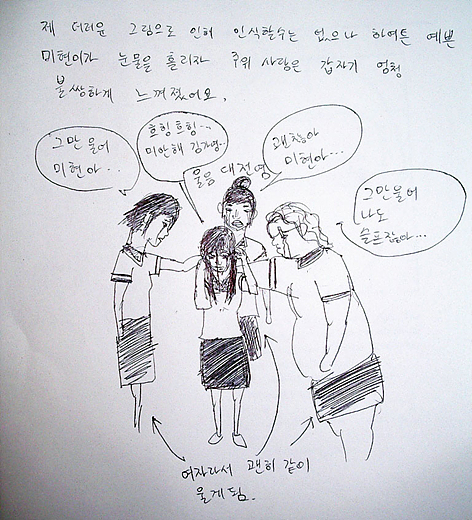 제 더러운 그림으로 인해 인식할수는 없으나 하여튼 예쁜
미현이가 눈물을 흘리자 주위 사람은 갑자기 엄청
불쌍하게 느껴졌어요.
그만 울어
미현아..
흐헝 흐헝...
미안해 김가영..
괜찮아
미현아...
울음 대전염
그만울어
나도
슬프잖아...
여자라서 괜히 같이
울게됨.